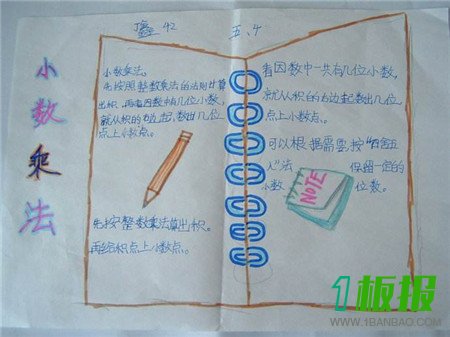 鑫 42
五、4
小数乘法
小数乘法:
先按照整数乘法的法则计算
出积,再看因数中有几位小数,
就从积的右边起,数出几位,
点上小数点。
先按整数乘法算出积。
再给积点上小数点。
看因数中一共有几位小数,
就从积的右边起数出几位,
点上小数点。
可以根据需要按“四舍五
入”法 保留一定的
小数 位数。
NOTE
1板报
WWW.1BANBAO.COM